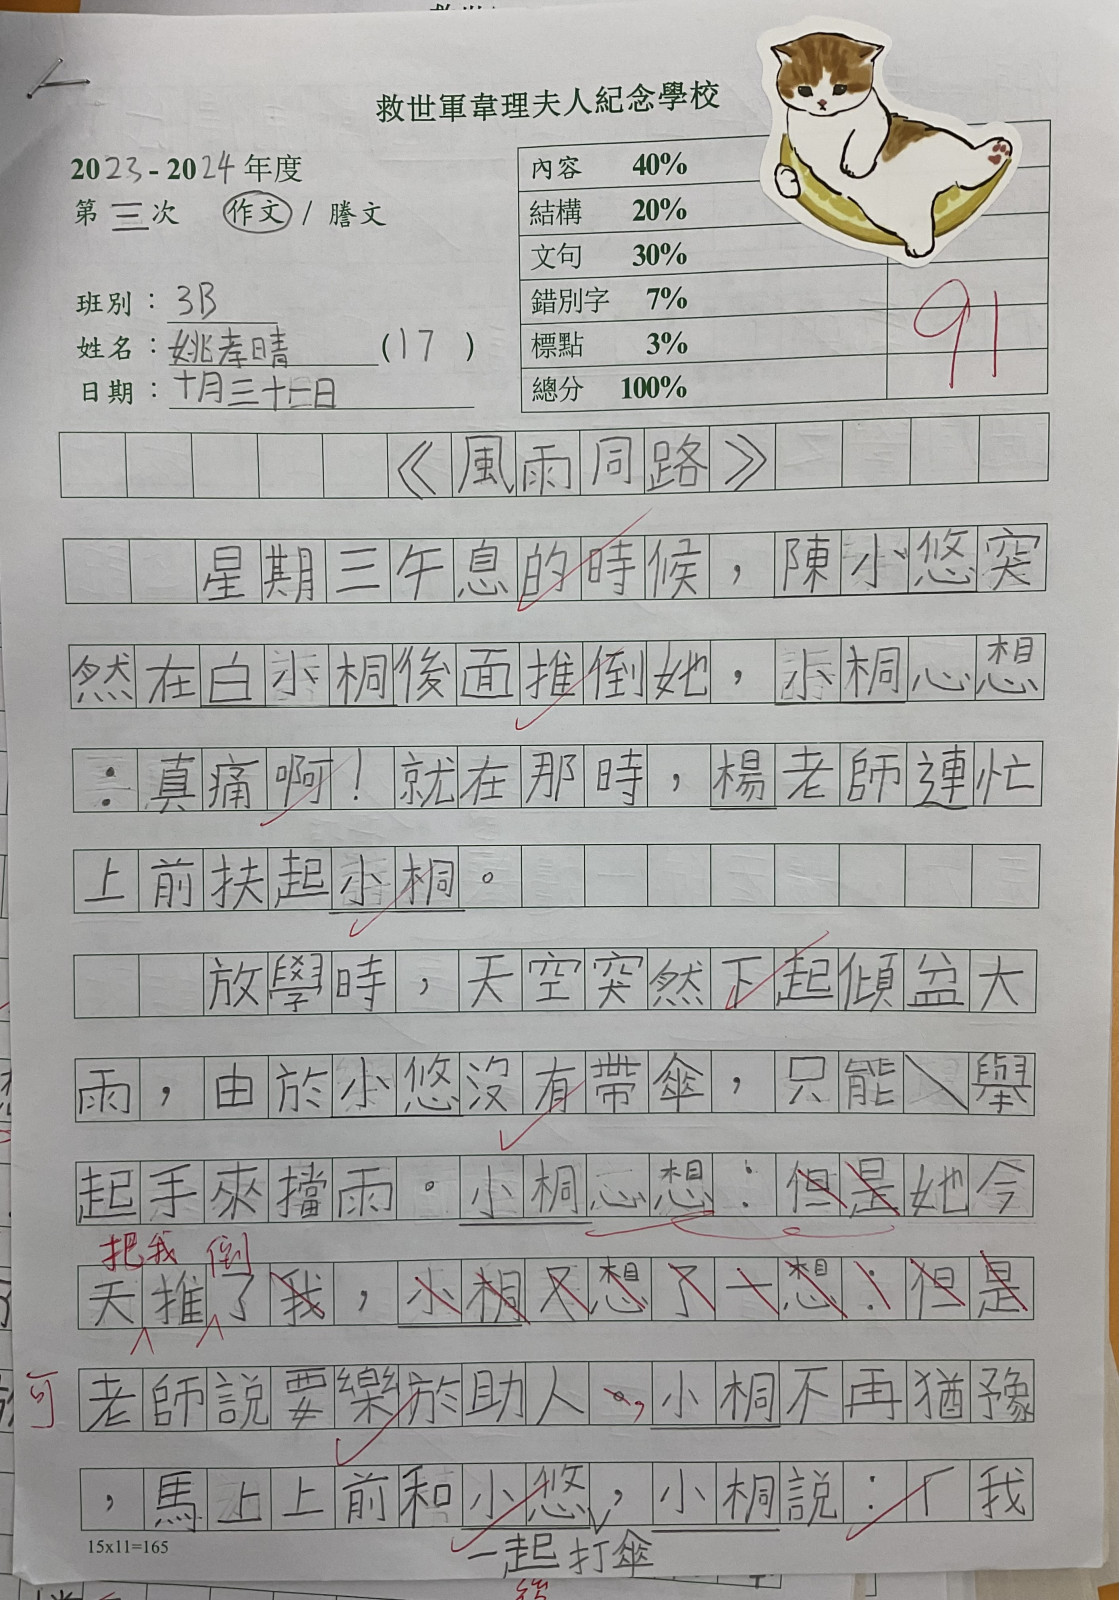 救世軍韋理夫人紀念學校
2023-2024年度
第三次 作文 / 謄文
班別：3B
姓名：姚孝晴 (17)
日期：十月三十一日
內容 40%
結構 20%
文句 30%
錯別字 7%
標點 3%
總分 100%
91
《風雨同路》
星期三午息的時候，陳小悠突
然在白小桐後面推倒她，小桐心想
：真痛啊！就在那時，楊老師連忙
上前扶起小桐。
放學時，天空突然下起傾盆大
雨，由於小悠沒有帶傘，只能舉
起手來擋雨。小桐心想：但是她今
把我 倒
天推了我，小桐又想了一想：但是
可
老師說要樂於助人。，小桐不再猶豫
，馬上上前和小悠，小桐說：「我
一起打傘
15x11=165